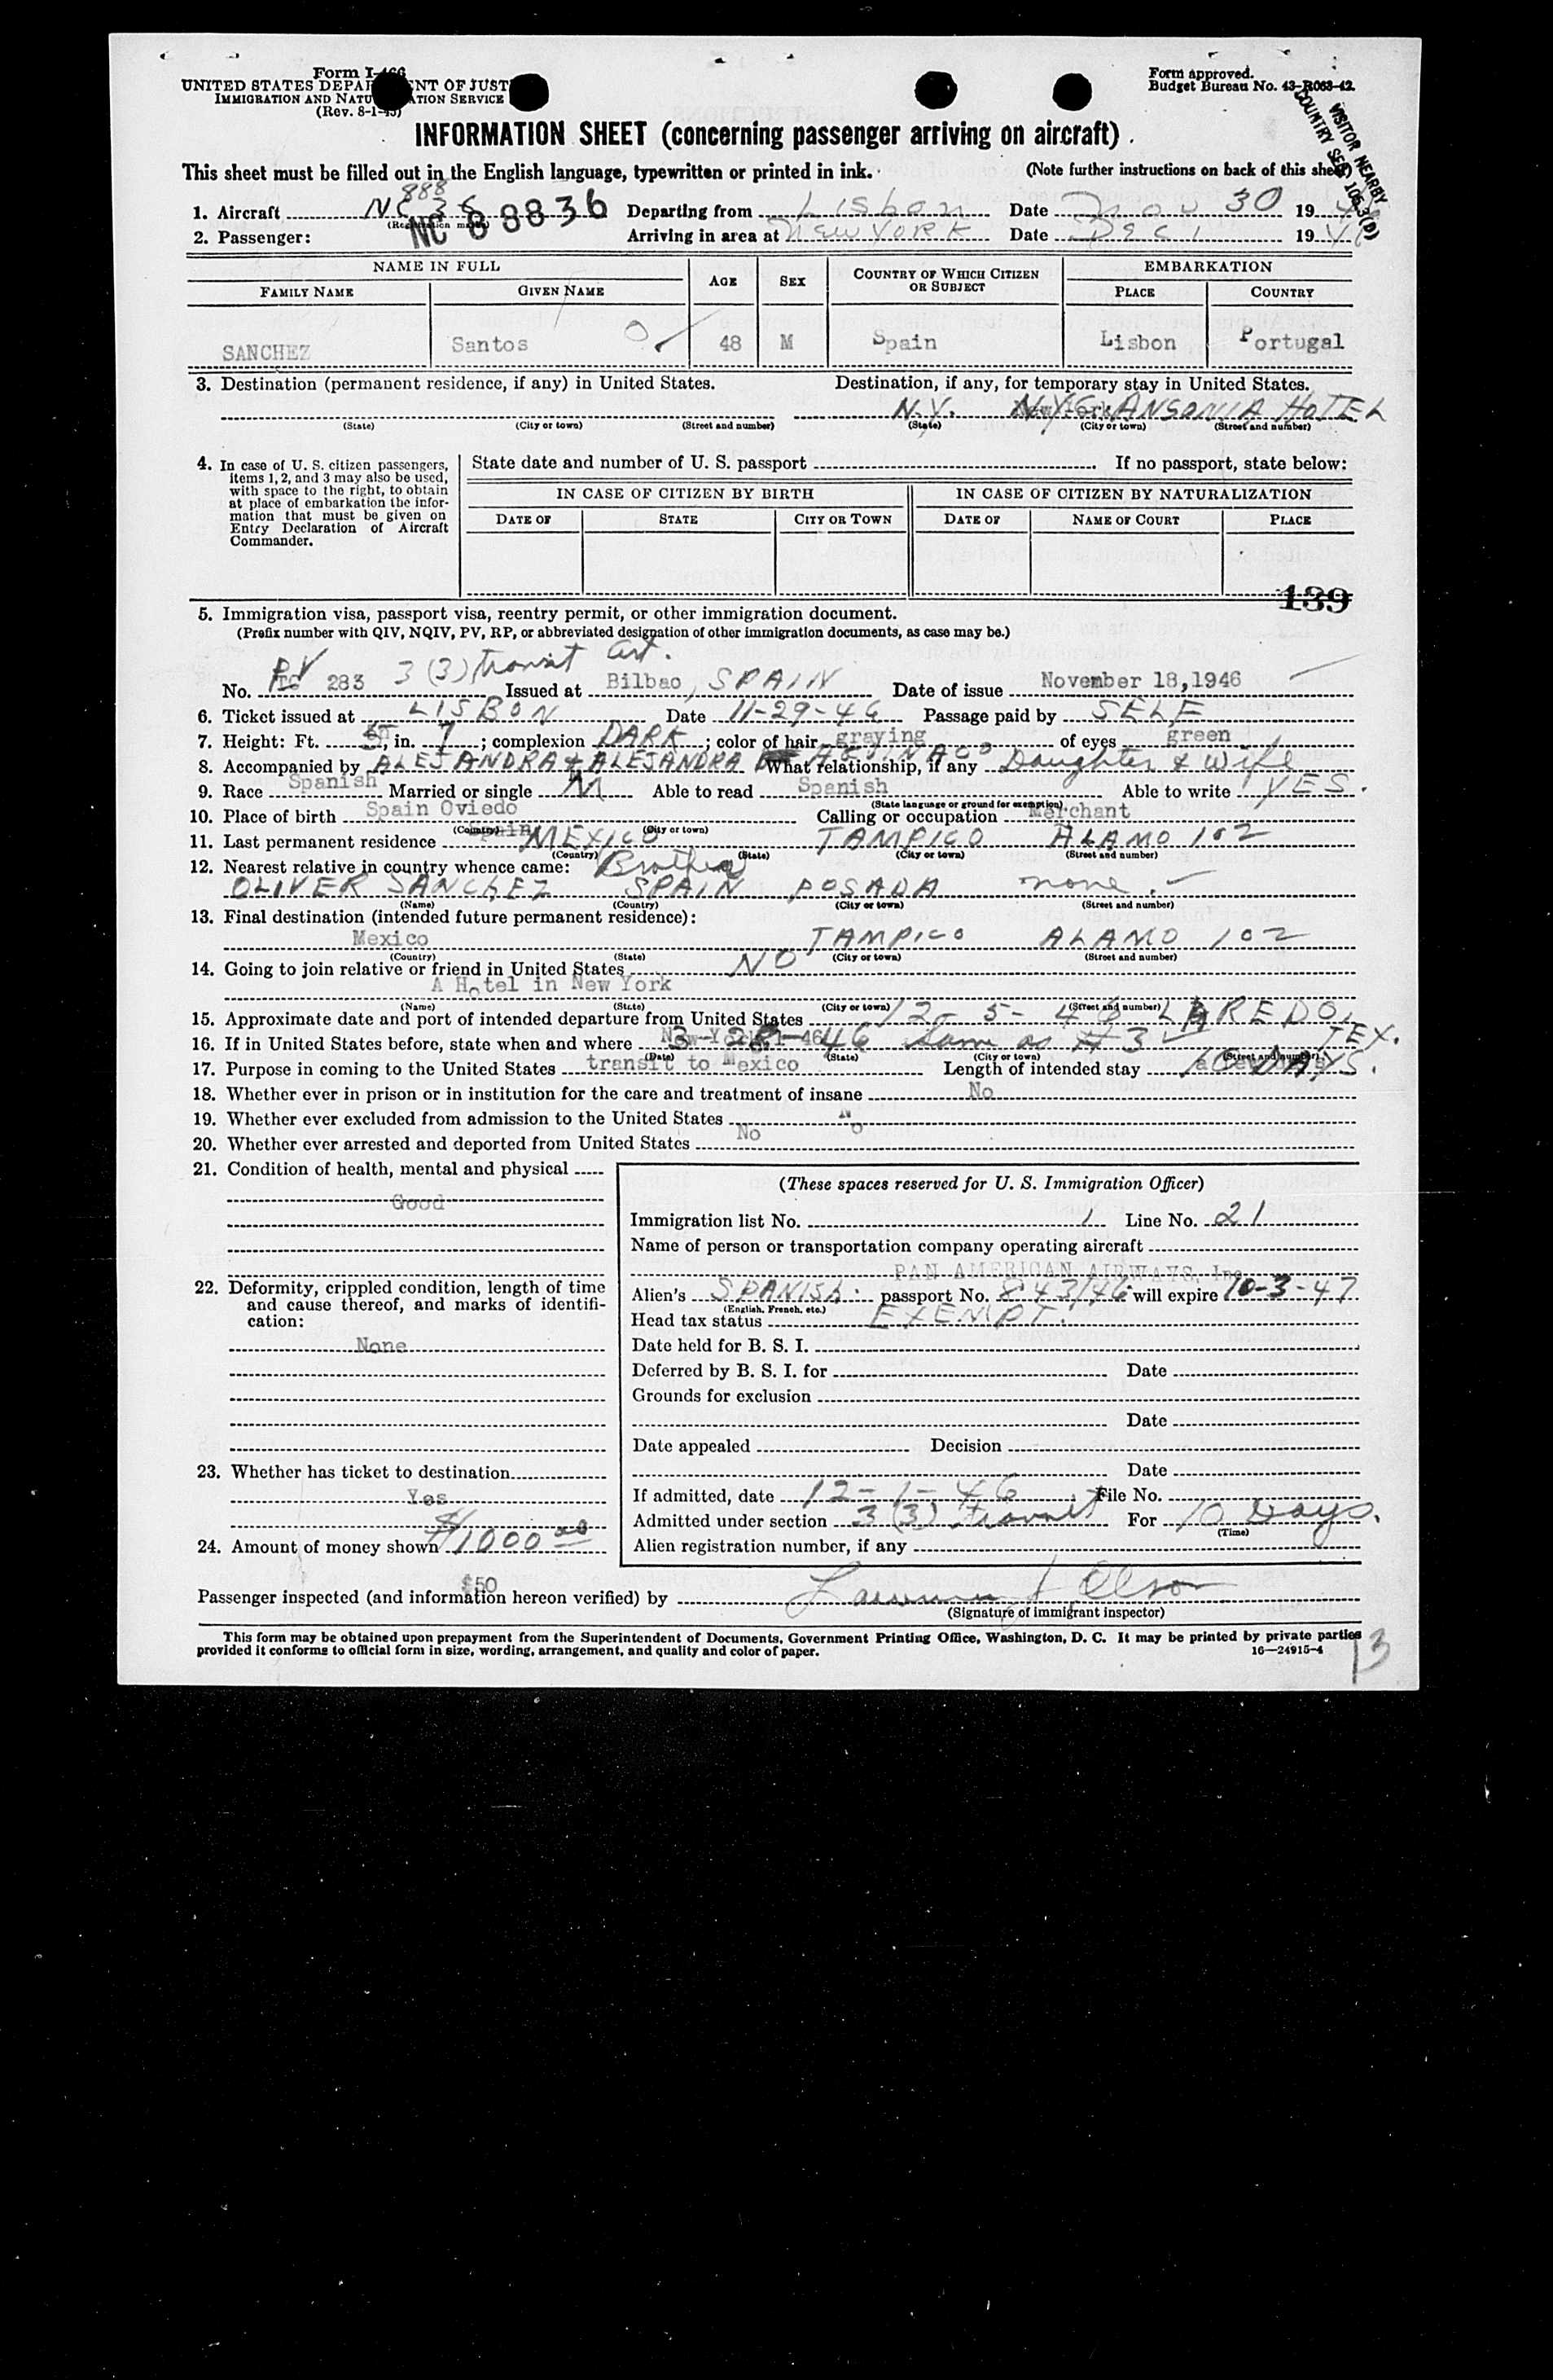 Form I-466
UNITED STATES DEPARTMENT OF JUSTICE
IMMIGRATION AND NATURALIZATION SERVICE
(Rev. 8-1-45)
Form approved.
Budget Bureau No. 43-R063-42.
VISITOR NEARBY
COUNTRY SEC. 165.3(b)
INFORMATION SHEET (concerning passenger arriving on aircraft)
This sheet must be filled out in the English language, typewritten or printed in ink. (Note further instructions on back of this sheet)
888
1. Aircraft NC 36 NC 88836 Departing from Lisbon Date Nov 30 19 46
(Registration marks)
2. Passenger: Arriving in area at NEW YORK Date Dec 1 19 46
NAME IN FULL AGE SEX COUNTRY OF WHICH CITIZEN OR SUBJECT EMBARKATION
FAMILY NAME GIVEN NAME PLACE COUNTRY
SANCHEZ Santos 48 M Spain Lisbon Portugal
3. Destination (permanent residence, if any) in United States. Destination, if any, for temporary stay in United States.
N.Y. N.Y.C. ANSONIA HOTEL
(State) (City or town) (Street and number) (State) (City or town) (Street and number)
4. In case of U. S. citizen passengers, items 1, 2, and 3 may also be used, with space to the right, to obtain at place of embarkation the information that must be given on Entry Declaration of Aircraft Commander.
State date and number of U. S. passport If no passport, state below:
IN CASE OF CITIZEN BY BIRTH IN CASE OF CITIZEN BY NATURALIZATION
DATE OF STATE CITY OR TOWN DATE OF NAME OF COURT PLACE
139
5. Immigration visa, passport visa, reentry permit, or other immigration document.
(Prefix number with QIV, NQIV, PV, RP, or abbreviated designation of other immigration documents, as case may be.)
PV 3 (3) transit Cert.
No. TC 283 Issued at Bilbao, SPAIN Date of issue November 18,1946
6. Ticket issued at LISBON Date 11-29-46 Passage paid by SELF
7. Height: Ft. 5, in. 7; complexion DARK; color of hair graying of eyes green
8. Accompanied by ALEJANDRA & ALEJANDRA What relationship, if any Daughter & Wife
9. Race Spanish Married or single M Able to read Spanish Able to write YES.
(State language or ground for exemption)
10. Place of birth Spain Oviedo Calling or occupation Merchant
(Country) (City or town)
11. Last permanent residence Spain MEXICO TAMPICO ALAMO 102
(Country) (State) (City or town) (Street and number)
12. Nearest relative in country whence came: Brother
OLIVER SANCHEZ SPAIN POSADA none.
(Name) (Country) (City or town) (Street and number)
13. Final destination (intended future permanent residence):
Mexico TAMPICO ALAMO 102
(Country) (State) (City or town) (Street and number)
14. Going to join relative or friend in United States NO
A Hotel in New York
(Name) (State) (City or town) (Street and number)
15. Approximate date and port of intended departure from United States 12-5-46 LAREDO, TEX.
16. If in United States before, state when and where 46 Same as #3
(Date) (State) (City or town) (Street and number)
17. Purpose in coming to the United States transit to Mexico Length of intended stay 10 DAYS.
18. Whether ever in prison or in institution for the care and treatment of insane No
19. Whether ever excluded from admission to the United States No
20. Whether ever arrested and deported from United States No
21. Condition of health, mental and physical
Good
22. Deformity, crippled condition, length of time and cause thereof, and marks of identification:
None
23. Whether has ticket to destination
Yes
24. Amount of money shown $1000 00
$50
(These spaces reserved for U. S. Immigration Officer)
Immigration list No. 1 Line No. 21
Name of person or transportation company operating aircraft
PAN AMERICAN AIRWAYS, Inc.
Alien's SPANISH passport No. 843/46 will expire 10-3-47
(English, French, etc.)
Head tax status EXEMPT.
Date held for B. S. I.
Deferred by B. S. I. for Date
Grounds for exclusion
Date
Date appealed Decision
Date
If admitted, date 12-1-46 File No.
Admitted under section 3(3) transit For 10 Days.
(Time)
Alien registration number, if any
Passenger inspected (and information hereon verified) by
(Signature of immigrant inspector)
This form may be obtained upon prepayment from the Superintendent of Documents, Government Printing Office, Washington, D. C. It may be printed by private parties
provided it conforms to official form in size, wording, arrangement, and quality and color of paper. 16—24915-4
13